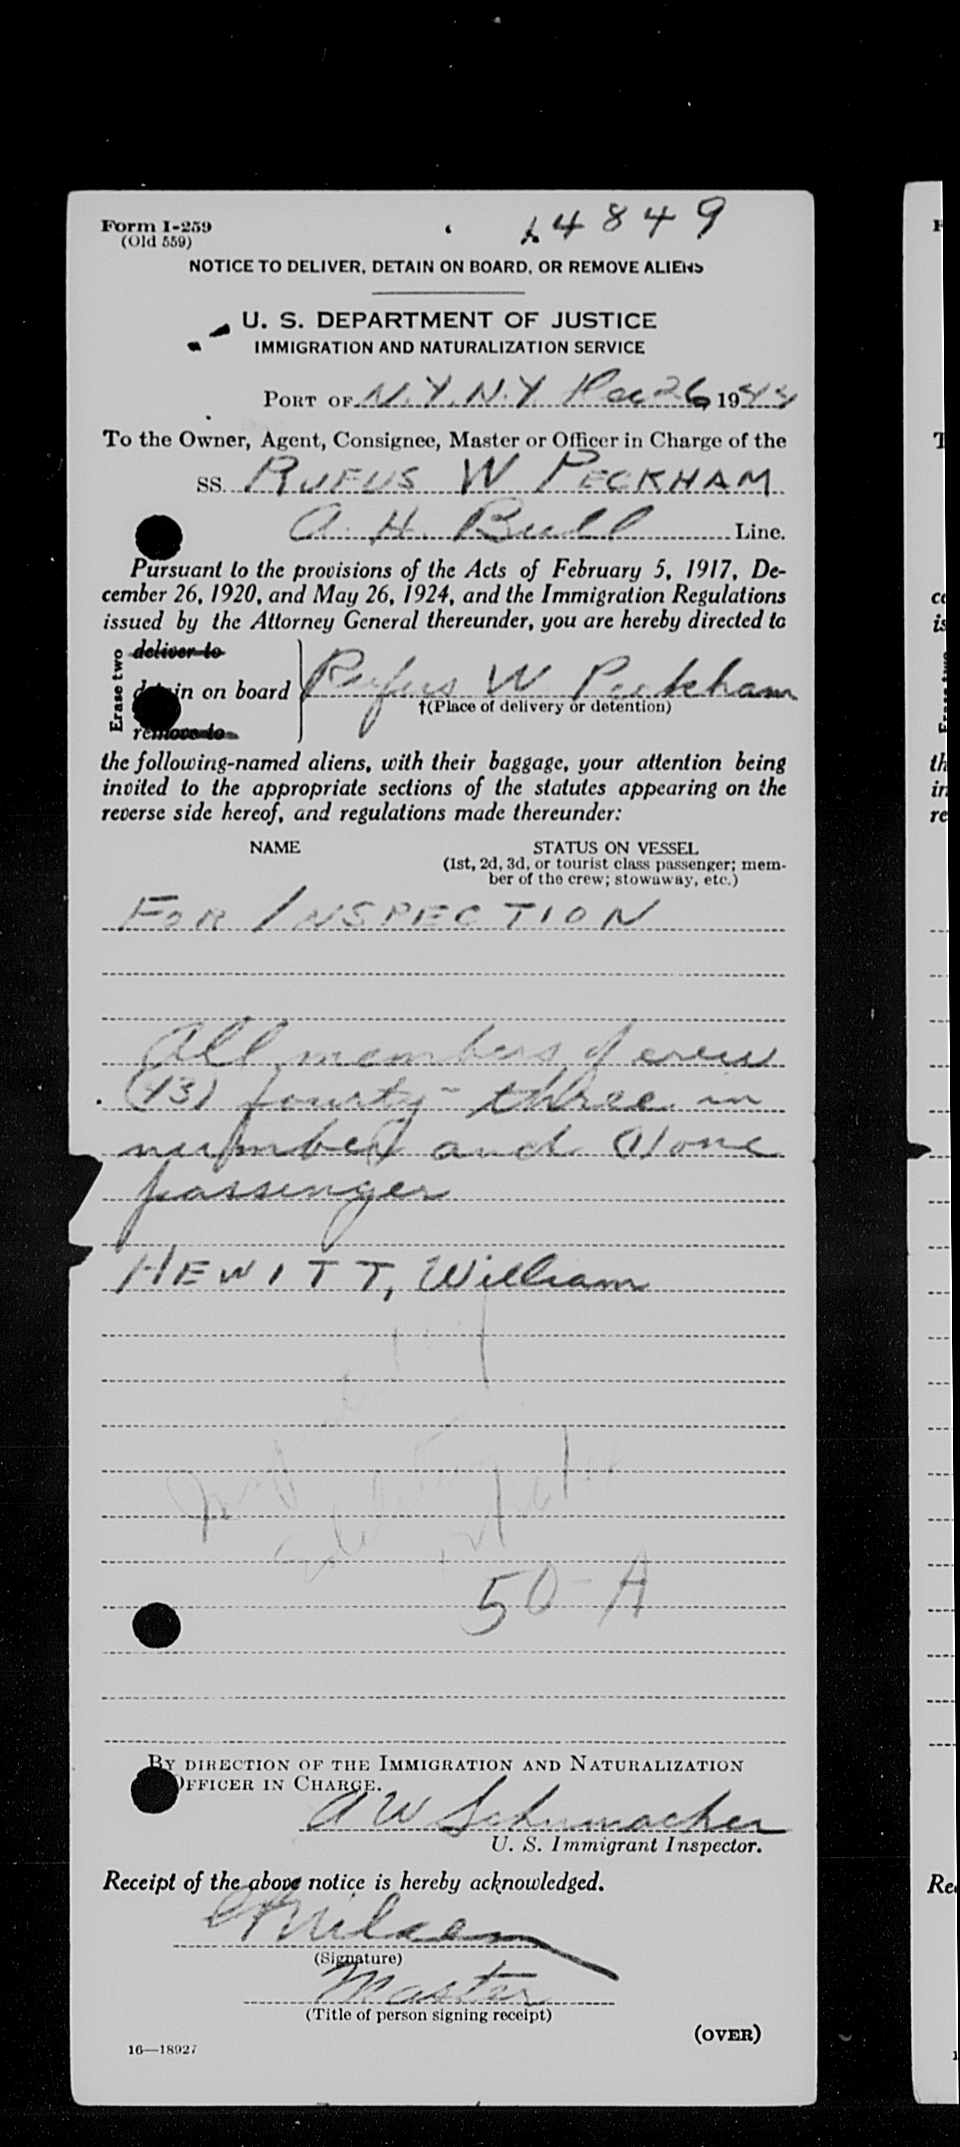 Form I-259
(Old 559)
14849
NOTICE TO DELIVER, DETAIN ON BOARD, OR REMOVE ALIENS
U. S. DEPARTMENT OF JUSTICE
IMMIGRATION AND NATURALIZATION SERVICE
PORT OF N.Y. N.Y. Dec 26, 1944
To the Owner, Agent, Consignee, Master or Officer in Charge of the
SS. RUFUS W PECKHAM
A. H. Bull Line.
Pursuant to the provisions of the Acts of February 5, 1917, De-
cember 26, 1920, and May 26, 1924, and the Immigration Regulations
issued by the Attorney General thereunder, you are hereby directed to
Erase two
deliver to
detain on board Rufus W Peckham
†(Place of delivery or detention)
remove to
the following-named aliens, with their baggage, your attention being
invited to the appropriate sections of the statutes appearing on the
reverse side hereof, and regulations made thereunder:
NAME STATUS ON VESSEL
(1st, 2d, 3d, or tourist class passenger; mem-
ber of the crew; stowaway, etc.)
FOR INSPECTION
All members of crew
(43) fourty-three in
number and (1) one
passenger
HEWITT, William
50-A
BY DIRECTION OF THE IMMIGRATION AND NATURALIZATION
OFFICER IN CHARGE.
A W Schumacher
U. S. Immigrant Inspector.
Receipt of the above notice is hereby acknowledged.
(Signature)
Master
(Title of person signing receipt)
(OVER)
16—18927